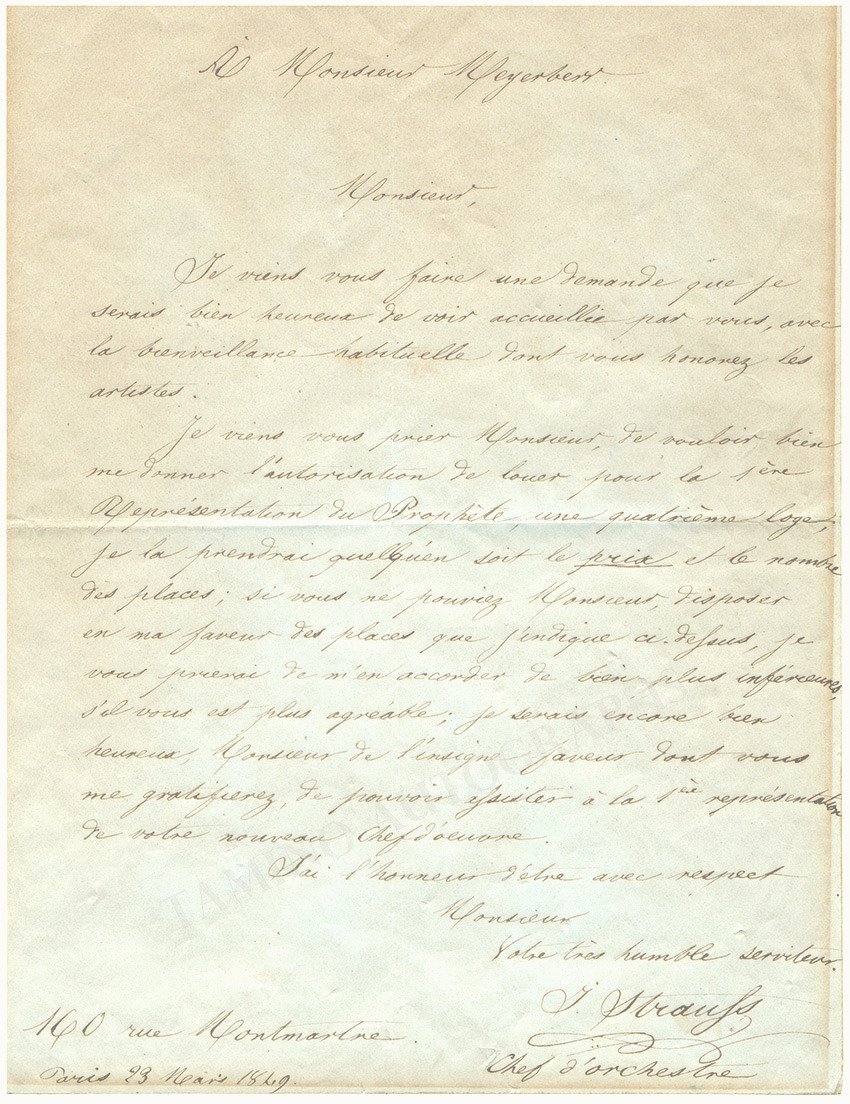 À Monsieur Meyerberr.
Monsieur,
Je viens vous faire une demande que je
serais bien heureux de voir accueillie par vous, avec
la bienveillance habituelle dont vous honorez les
artistes.
Je viens vous prier Monsieur, de vouloir bien
me donner l'autorisation de louer pour la 1ère
Représentation du Prophète, une quatrième loge,
je la prendrai quelqu'en soit le prix et le nombre
des places; si vous ne pouviez Monsieur, disposer
en ma faveur des places que j'indique ci-dessus, je
vous prierai de m'en accorder de bien plus inférieures,
s'il vous est plus agreable; je serais encore bien
heureux, Monsieur de l'insigne faveur dont vous
me gratifierez, de pouvoir assister à la 1ère représentation
de votre nouveau Chef d'oeuvre.
J'ai l'honneur d'être avec respect
Monsieur
Votre très humble serviteur.
J. Strauss
Chef d'orchestre
160 rue Montmartre.
Paris 23 Mars 1849.
TAMINO AUTOGRAPHS